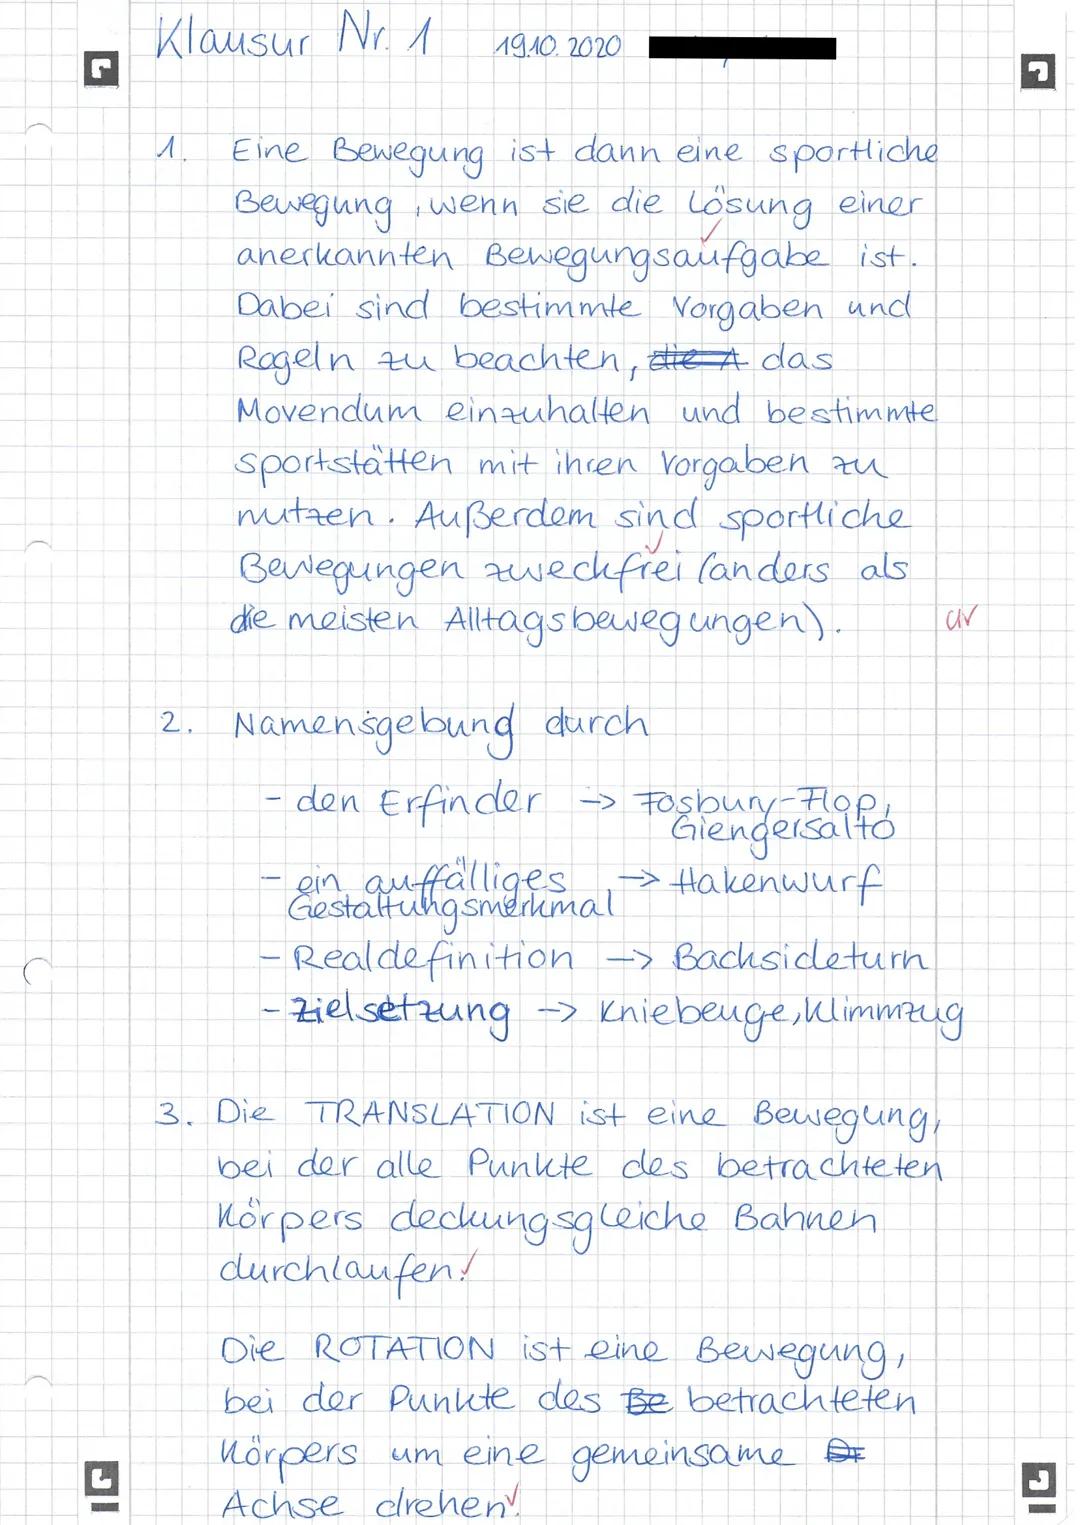 Klausur Nr. 1 19.10.2020
1. Eine Bewegung ist dann eine sportliche
Bewegung, wenn sie die Lösung einer
anerkannten Bewegungsaufgabe ist.
Dabei sind bestimmte Vorgaben und
Regeln zu beachten, die A das
Movendum einzuhalten und bestimmte
Sportstätten mit ihren Vorgaben zu
nutzen. Außerdem sind sportliche
Bewegungen zweckfrei (anders als
die meisten Alltagsbewegungen).
2. Namensgebung durch
- den Erfinder -> Fosbury-Flop,
Giengersalto
- ein auffälliges -> Hakenwurf
Gestaltungsmerkmal
- Realdefinition -> Backsideturn
- Zielsetzung -> Kniebeuge, Klimmzug
3. Die TRANSLATION ist eine Bewegung,
bei der alle Punkte des betrachteten
Körpers deckungsgleiche Bahnen
durchlaufen.
Die ROTATION ist eine Bewegung,
bei der Punkte des Be betrachteten
Körpers um eine gemeinsame
Achse drehen.